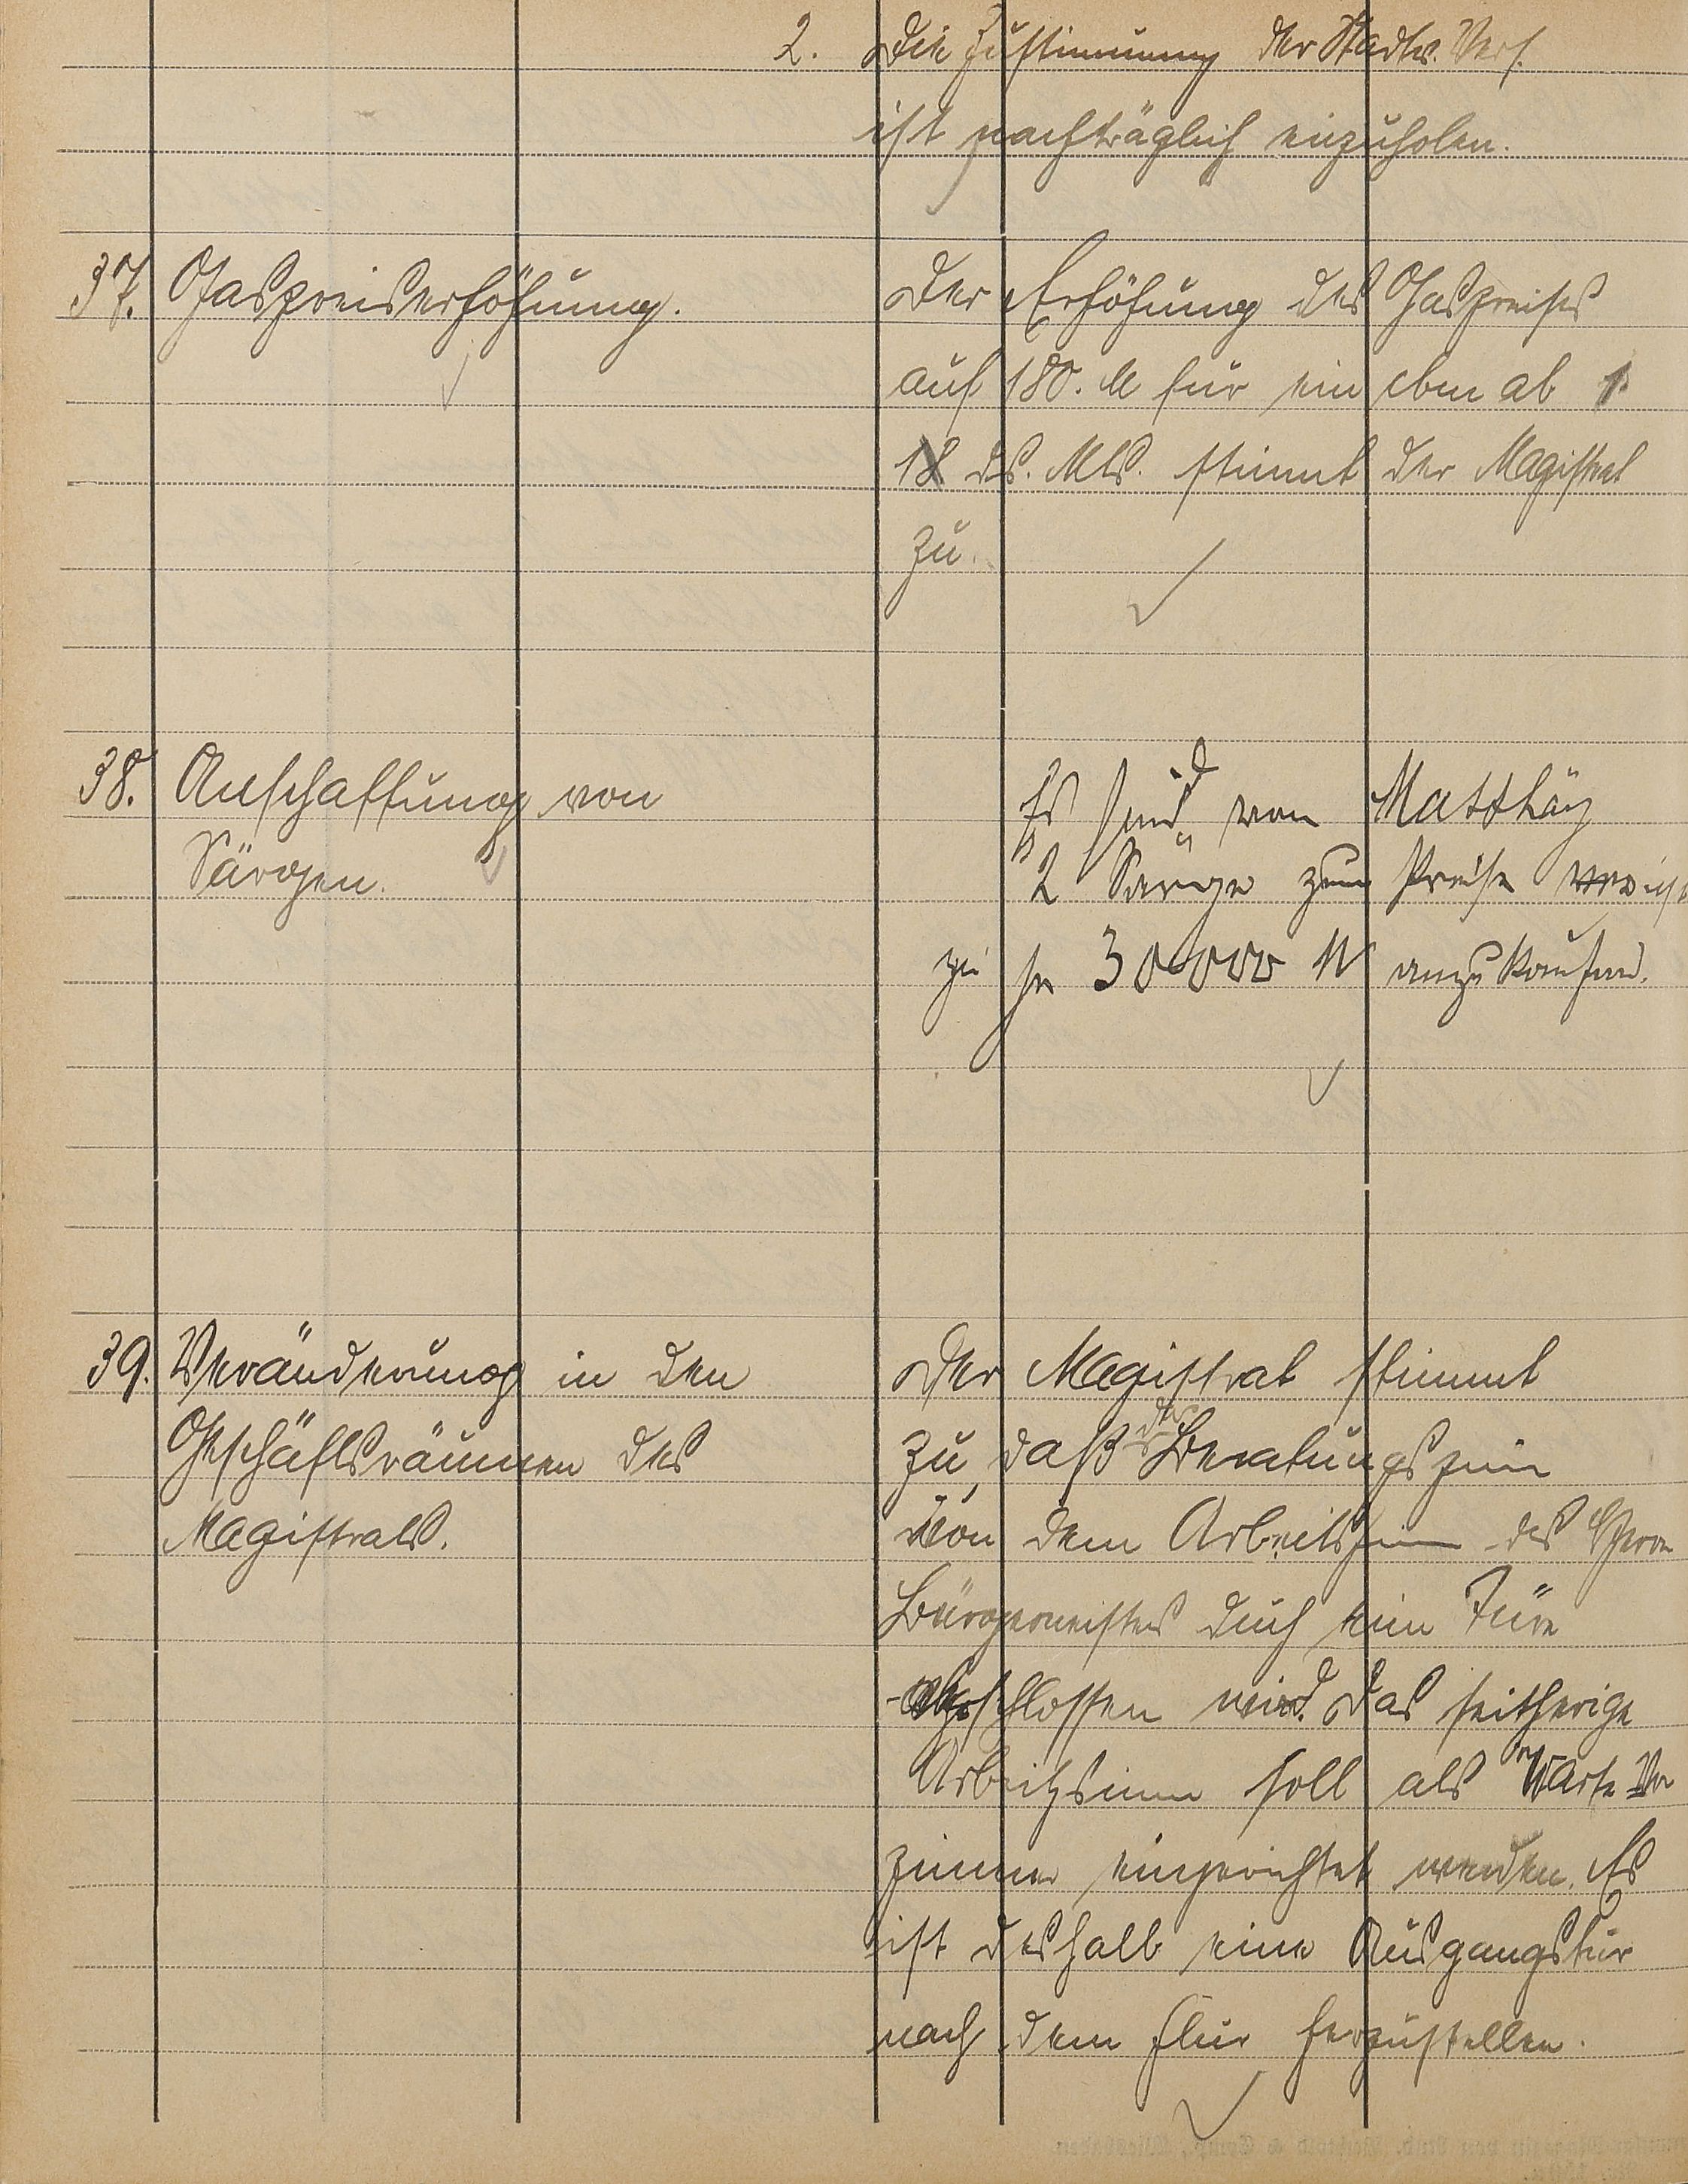 2. Die Zustimmung der Stadtv. Vers.
ist nachträglich einzuholen.
37. Gaspreiserhöhung.
Der Erhöhung des Gaspreises
auf 180. M für ein cbm ab
18 ds. Mts. stimmt der Magistrat
zu.
38. Anschaffung von
Särgen.
Es sind von Matthäy
2 Särge zum Preise
zu je 30000 M anzukaufen.
39. Veränderung in den
Geschäftsräumen des
Magistrats.
Der Magistrat stimmt
zu, daß das Beratungszim
von dem Arbeitszim des Herrn
Bürgermeisters durch eine Türe
abgeschlossen wird. Das seitherige
Arbeitszimm soll als Warte Vor
zimmer eingerichtet werden. Es
ist deshalb eine Ausgangstür
nach dem Flur herzustellen.